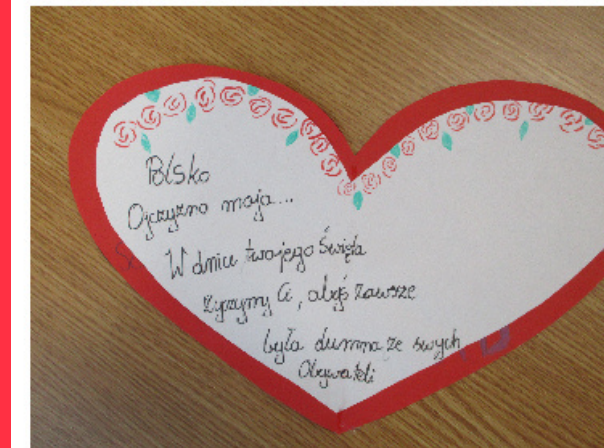 Polsko
Ojczyzno moja...
W dniu twojego Święta
życzymy Ci, abyś zawsze
była dumna ze swych
Obywateli